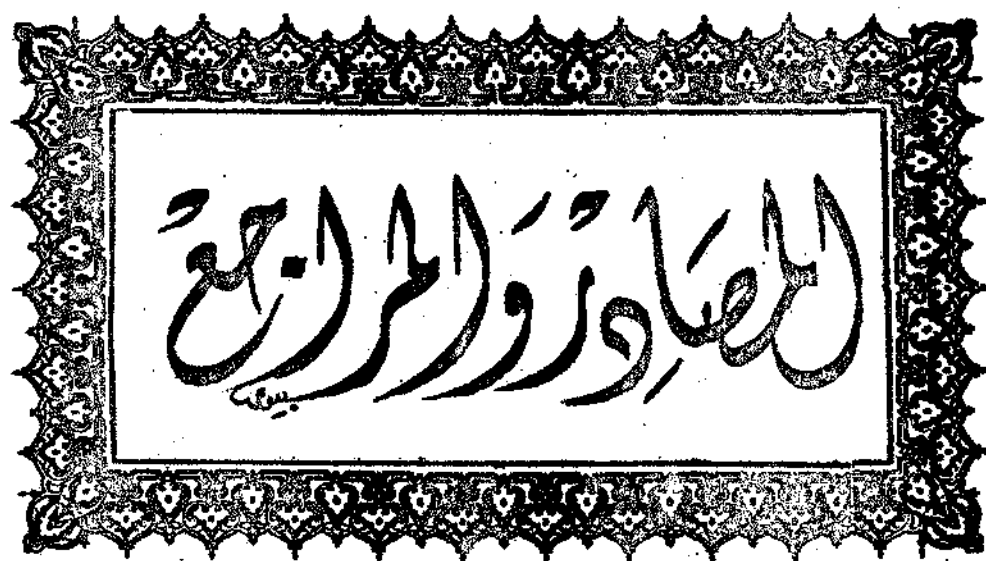 المصَادِرُ وَالمراجعُ